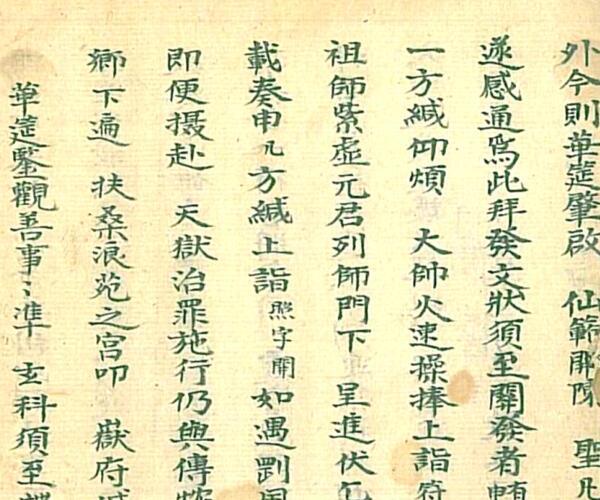 外今則華筵肇啟 仙範開陳 聖凡
遂感通爲此拜發文狀須至關發者輙
一方緘仰煩 大帥火速操捧上詣符
祖師紫虛元君列師門下 呈進伏乞
載奏申几方緘上詣 照字開 如遇罡風
即便摄赴 天獄治罪施行仍與傳
鄉下遍 扶桑浪苑之宮叩 嶽府
華筵鑒觀善事〻準 玄科須至